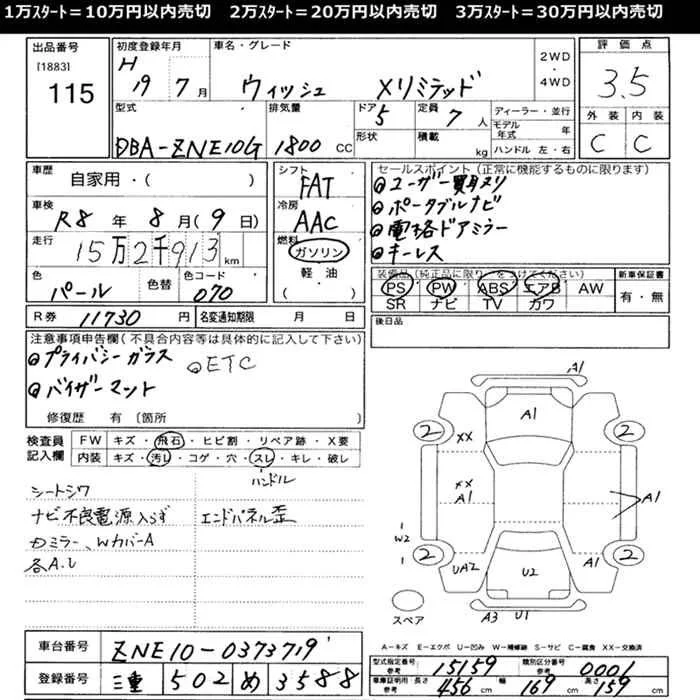 1万スタート＝10万円以内売切　2万スタート＝20万円以内売切　3万スタート＝30万円以内売切
出品番号
[1883]
115
初度登録年月
H 19 年 7 月
車名・グレード
ウィッシュ Xリミテッド
2WD・4WD
評価点
3.5
外装 内装
C C
型式
DBA-ZNE10G
排気量
1800 CC
ドア
5
形状
定員
7 人
積載 kg
ディーラー・並行
モデル年式 年
ハンドル 左・右
車歴
自家用・( )
車検
R8 年 8 月 (9 日)
走行
15万2千913 km
色
パール
色替
色コード
070
シフト
FAT
冷房
AAC
燃料
ガソリン
軽油
( )
セールスポイント（正常に機能するものに限ります）
ユーザー買取り
ポータブルナビ
電格ドアミラー
キーレス
装備品（純正品に限り○をつけてください）
PS PW ABS エアB AW
SR ナビ TV カワ
新車保証書
有・無
R券 11730 円
名変通知期限 月 日
後日品
注意事項申告欄（不具合内容等は具体的に記入して下さい）
プライバシーガラス ETC
バイザーマット
修復歴 有〔箇所 〕
検査員記入欄
FW キズ・飛石・ヒビ割・リペア跡・X要
内装 キズ・汚レ・コゲ・穴・スレ・キレ・破レ
ハンドル
シートシワ
ナビ不良電源入らず エンドパネル歪
カミラー、WカバーA
各A.U
A1
A1
2 2
XX
XX
A1
A1
W2
2 2
UA2 U2 A1
スペア
A3 U1
A-キズ E-エクボ U-凹み W-補修跡 S-サビ C-腐食 XX-交換済
車台番号
ZNE10-0373719
登録番号
三重 502 め 3588
型式指定番号
参考
15159
類別区分番号
参考
0001
車庫証明用・長さ
参考
456 cm
幅
169 cm
高さ
159 cm